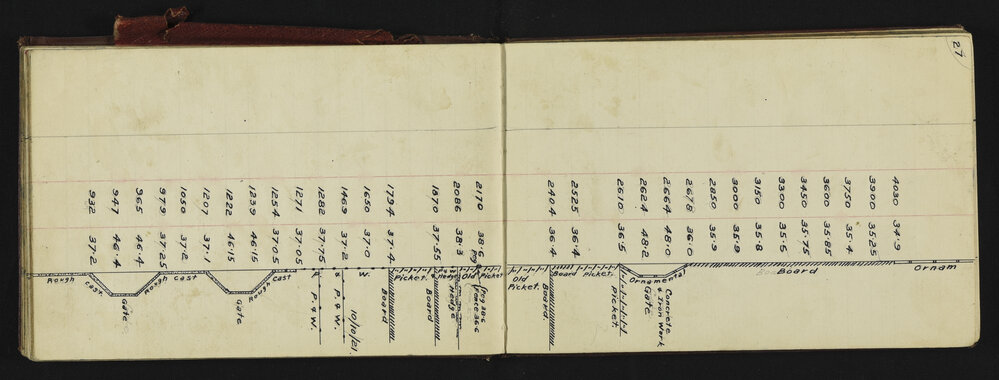 27
932 37.2
947 46.4
965 46.4
979 37.25
1050 37.2
1207 37.1
1222 46.15
1239 46.15
1254 37.05
1271 37.05
1282 37.15
1469 37.2
1650 37.0
1794 37.4
1870 37.55
2086 38.3
2170 38.6
2404 36.4
2525 36.4
2610 36.5
2624 48.2
2664 48.0
2678 36.0
2850 35.9
3000 35.9
3150 35.8
3300 35.5
3450 35.75
3600 35.85
3750 35.4
3900 35.25
4030 34.9
Rough
Cast.
Gate
Rough
Cast
Gate
Rough
Cast
P. & W.
P. & W.
P. & W.
10/10/21.
Board
Picket.
Board
Hedge
Old Picket
Peg
Peg 38.6
Fence 36.6
Old
Picket.
Board.
Board Picket.
Picket.
Ornamental
Gate
Concrete
& Iron Work
Board
Ornam